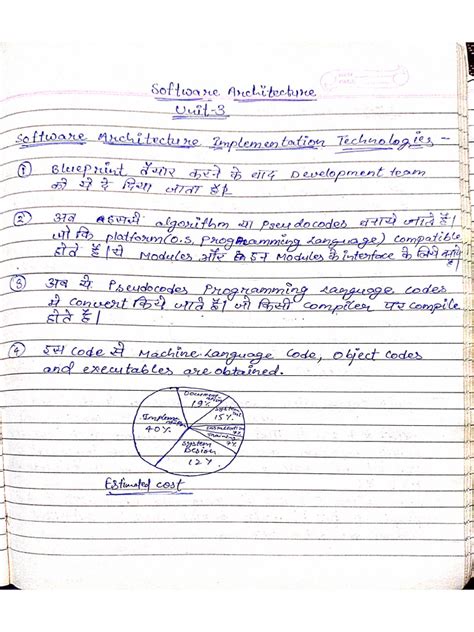 Software Architecture
Unit-3
Software Architecture Implementation Technologies -
① Blueprint तैयार करने के बाद Development team
को ये दे दिया जाता है।
② अब इससे algorithm या Pseudocodes बनाये जाते हैं।
जो कि platform (O.S. Programming Language) compatible
होते हैं। ये Modules और इन Modules के interface के लिये
③ अब ये Pseudocodes Programming Language codes
में convert किये जाते हैं। जो किसी compiler पर compile
होते हैं।
④ इस Code से Machine Language Code, Object Codes
and executables are obtained.
19%
15%
Implemen
40%
7%
7%
System
Design
12%
Estimated cost